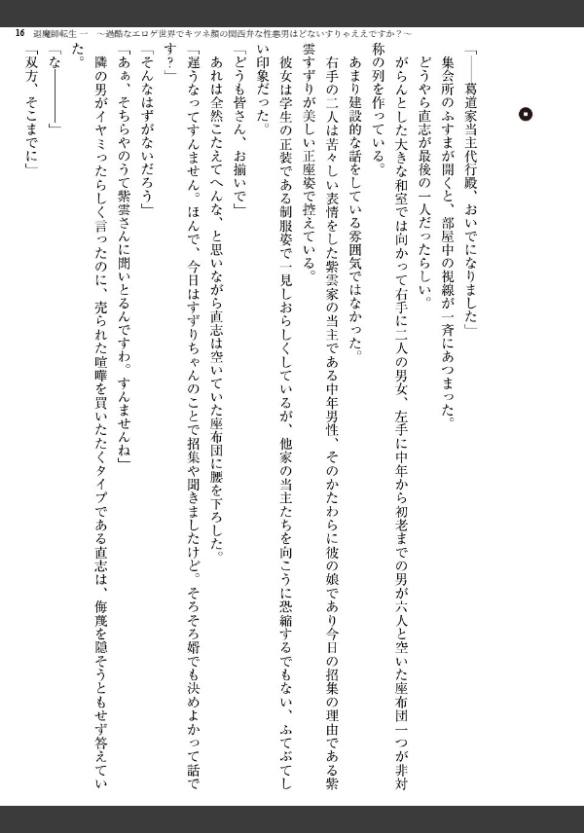 16 退魔師転生 一 ～過酷なエロゲ世界でキツネ顔の関西弁な性悪男はどないすりゃええですか？～
「――葛道家当主代行殿、おいでになりました」
集会所のふすまが開くと、部屋中の視線が一斉にあつまった。
どうやら直志が最後の一人だったらしい。
がらんとした大きな和室では向かって右手に二人の男女、左手に中年から初老までの男が六人と空いた座布団一つが非対
称の列を作っている。
あまり建設的な話をしている雰囲気ではなかった。
右手の二人は苦々しい表情をした紫雲家の当主である中年男性、そのかたわらに彼の娘であり今日の招集の理由である紫
雲すずりが美しい正座姿で控えている。
彼女は学生の正装である制服姿で一見しおらしくしているが、他家の当主たちを向こうに恐縮するでもない、ふてぶてし
い印象だった。
「どうも皆さん、お揃いで」
あれは全然こたえてへんな、と思いながら直志は空いていた座布団に腰を下ろした。
「遅うなってすんません。ほんで、今日はすずりちゃんのことで招集や聞きましたけど。そろそろ婿でも決めよかって話で
す？」
「そんなはずがないだろう」
「あぁ、そちらやのうて紫雲さんに聞いとるんですわ。すんませんね」
隣の男がイヤミったらしく言ったのに、売られた喧嘩を買いたたくタイプである直志は、侮蔑を隠そうともせず答えてい
た。
「な――――」
「双方、そこまでに」